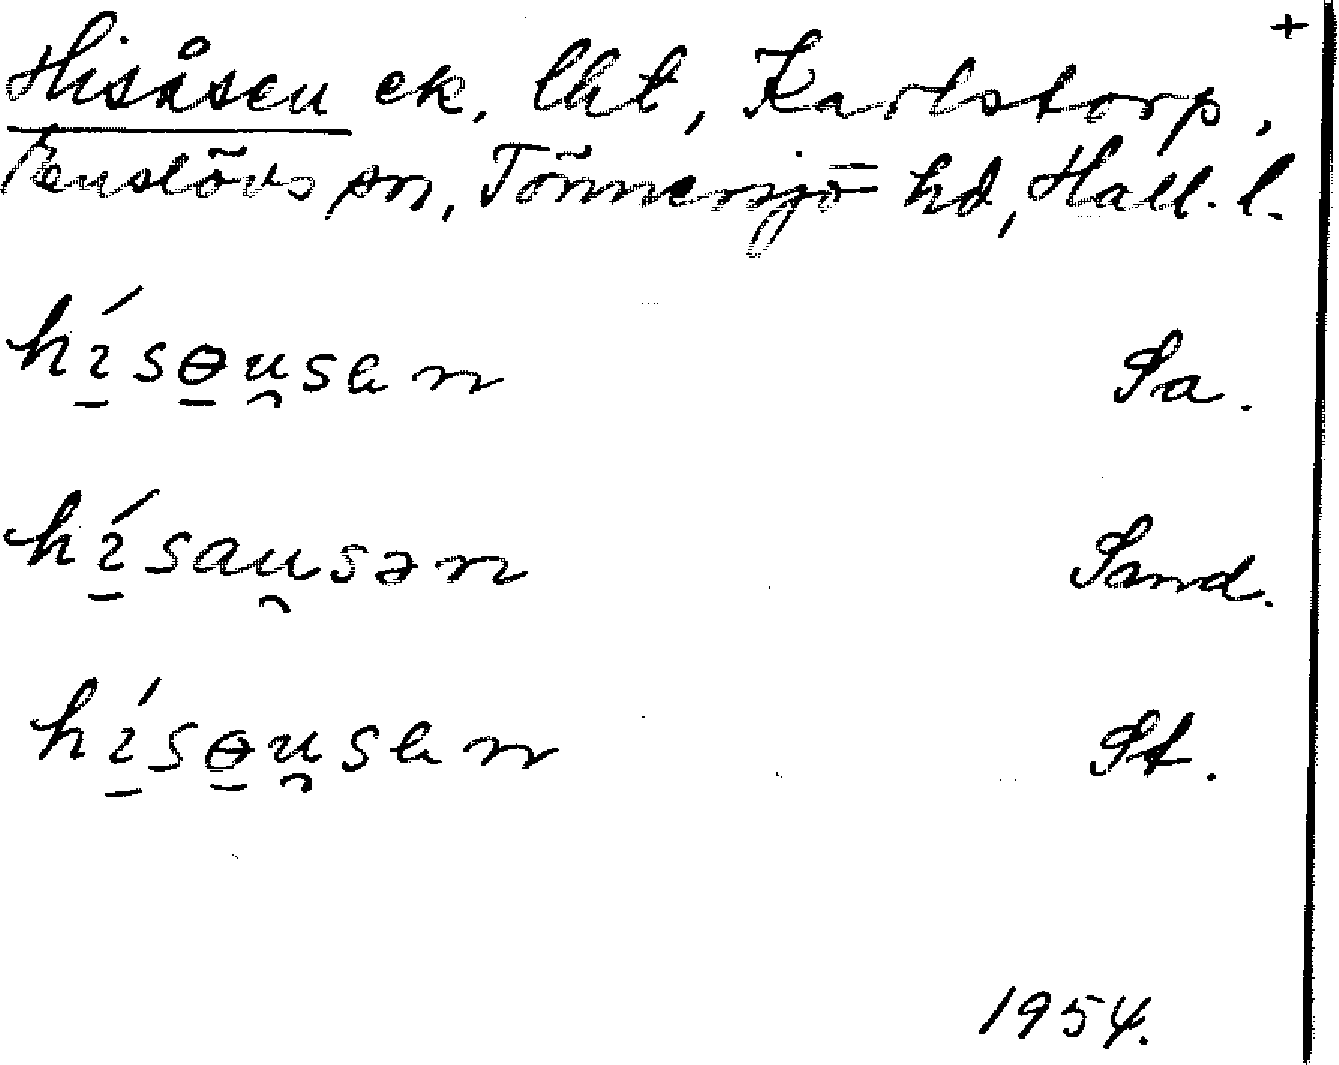 +
Hisåsen ek. lht, Karlstorp,
Enslövs sn, Tönnersjö hd, Hall. l.
hı̱́sɵ̱u̯sen Sa.
hı̱́sau̯sən Sand.
hı̱́sɵ̱u̯sen St.
1954.